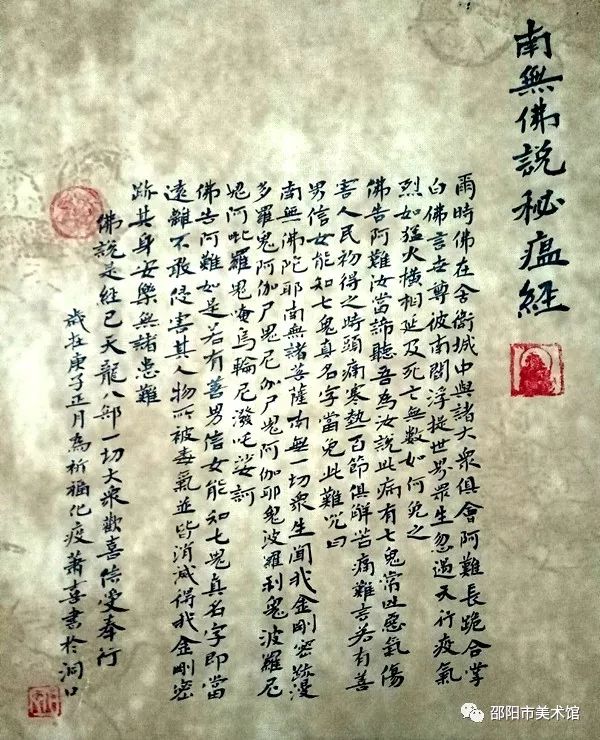 南無佛說秘瘟經
爾時佛在舍衛城中與諸大衆俱會阿難長跪合掌
白佛言世尊彼南閻浮提世界衆生忽遇天行疫氣
烈如猛火橫相延及死亡無數如何免之
佛告阿難汝當諦聽吾為汝說此病有七鬼常吐惡氣傷
害人民初得之時頭痛寒熱百節俱解苦痛難言若有善
男信女能知七鬼真名字當免此難咒曰
南無佛陀耶南無諸菩薩南無一切衆生聞我金剛密跡漫
多羅鬼阿伽尸鬼尼伽尸鬼阿伽耶鬼波羅利鬼波羅尼
鬼阿毗羅鬼唵烏輪尼潑吒娑訶
佛告阿難如是若有善男信女能知七鬼真名字即當
遠離不敢侵害其人物所被毒氣並皆消滅得我金剛密
跡其身安樂無諸患難
佛說是經已天龍八部一切大衆歡喜信受奉行
歲在庚子正月為祈福化疫蕭喜書於洞口
邵阳市美术馆